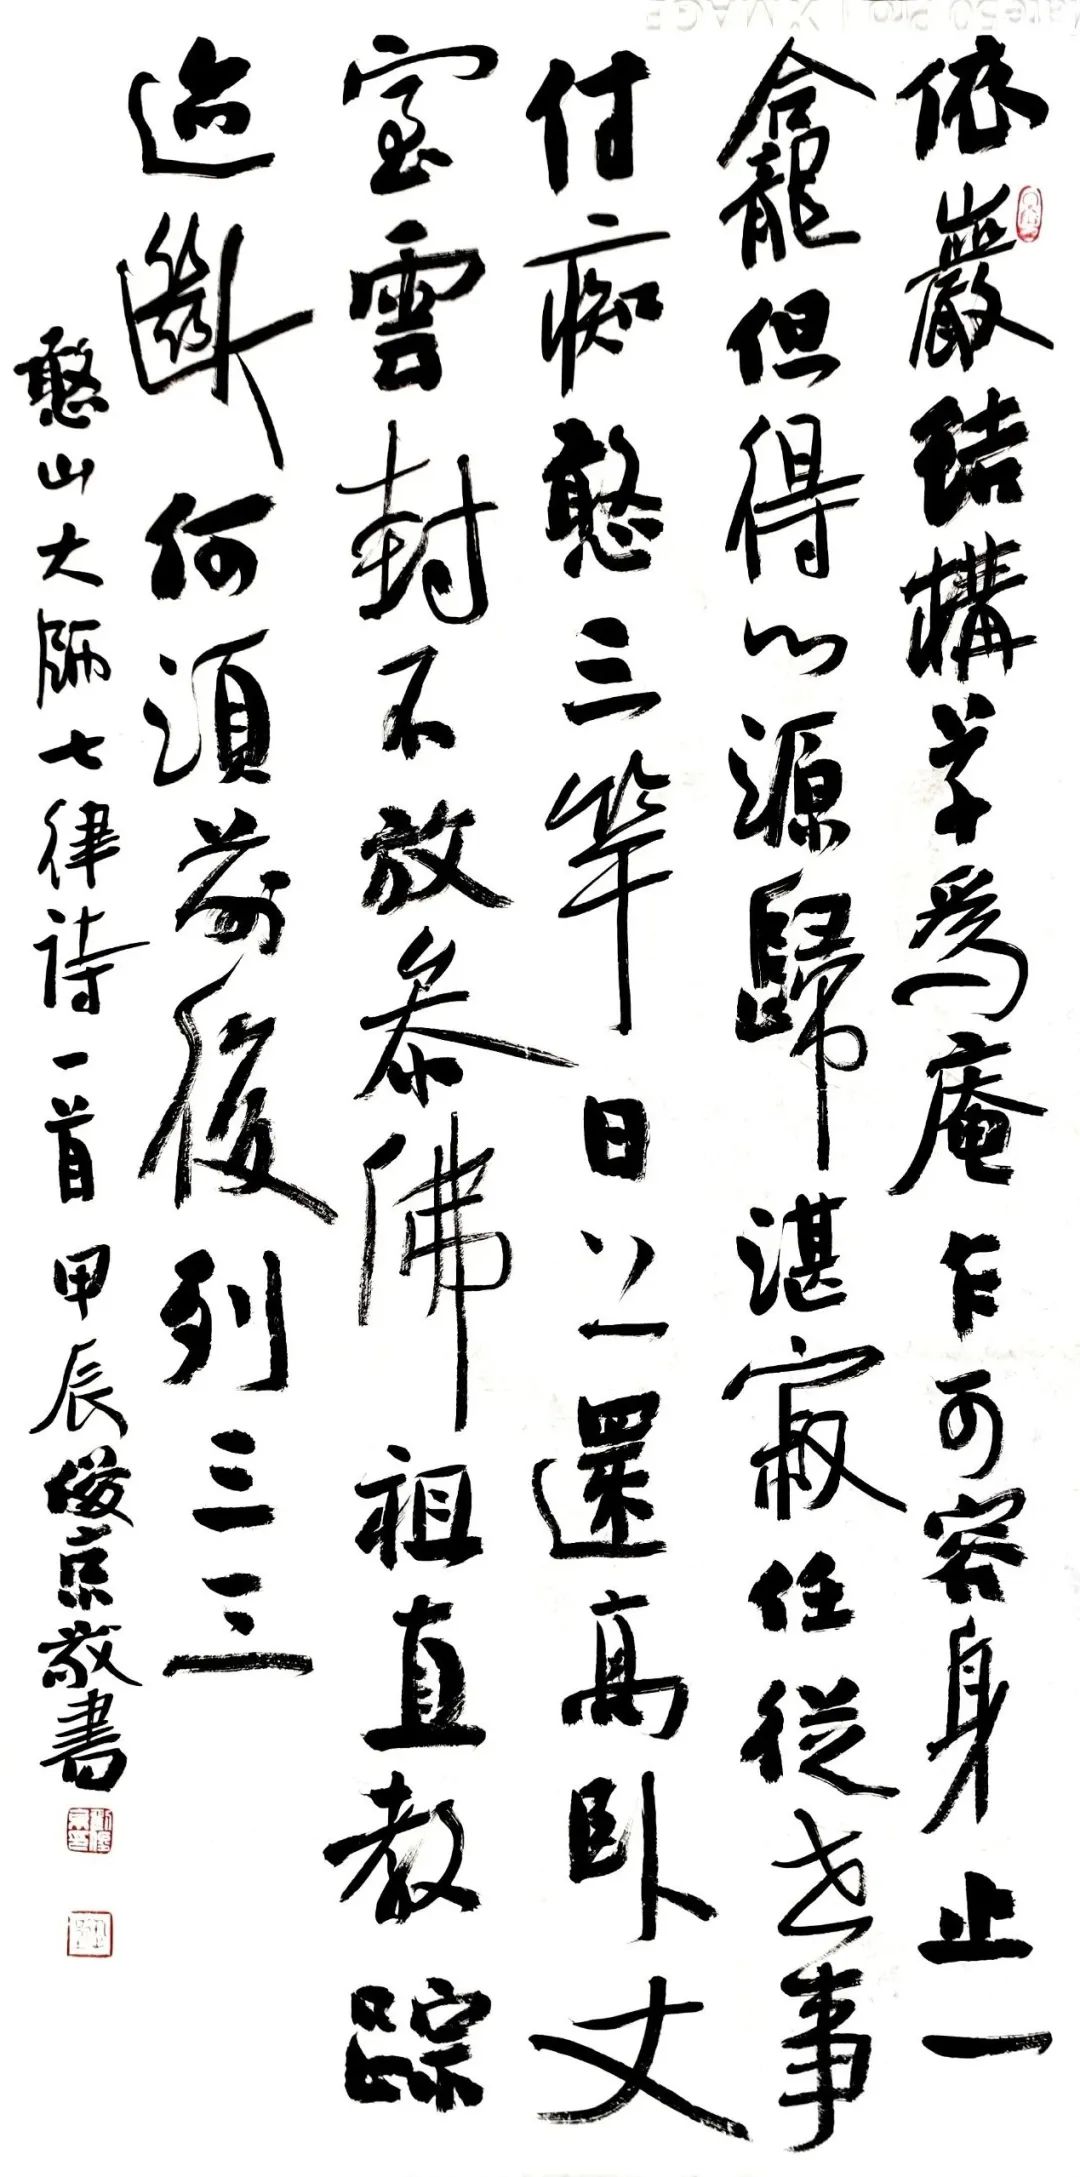 依巖結構草爲庵乍可容身止一
龕但得心源歸湛寂任從世事
付痴憨三竿日上還高卧丈
室雲封不放叅佛祖直教踪
迹斷何須前後列三三
憨山大師七律詩一首甲辰俊京敬書